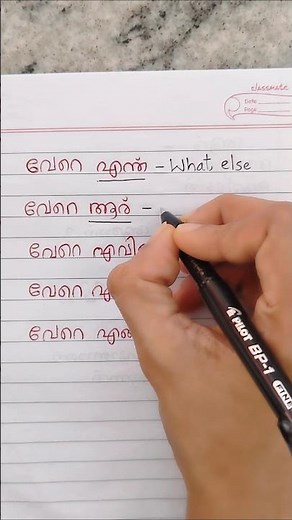 classmate
Date
Page
വേറെ എന്ത് - What else
വേറെ ആര് -
വേറെ
വേറെ
വേറെ
PILOT BP-1 FINE